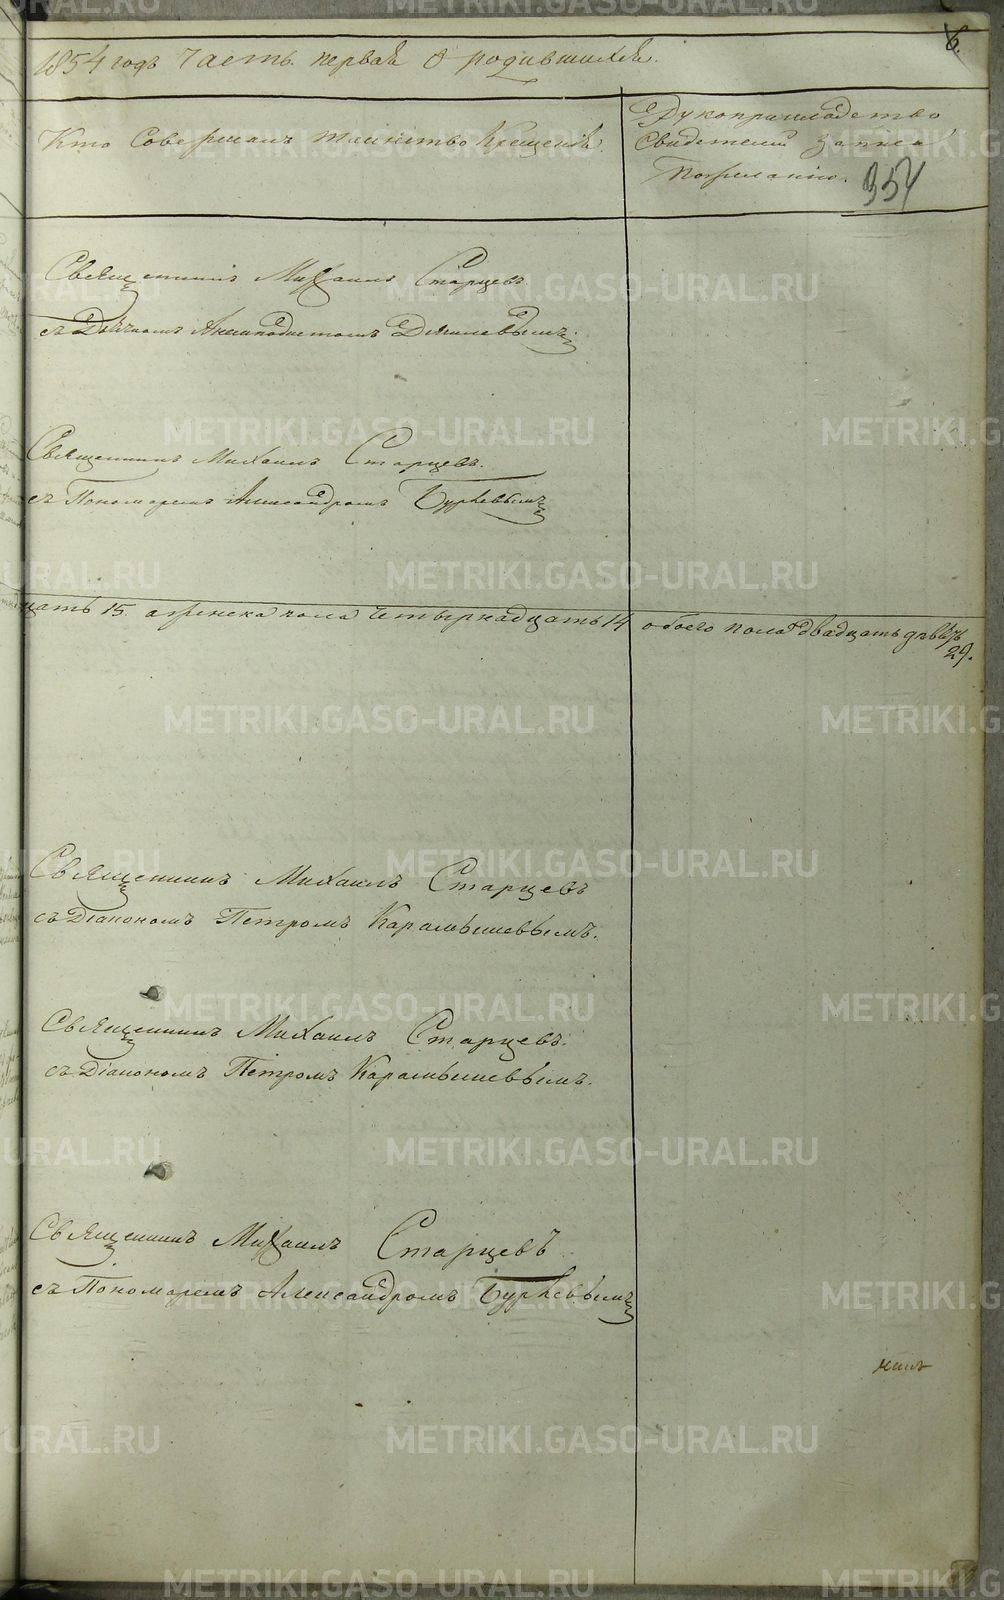 6.
1854 годъ Часть первая о родившихся.
Кто совершалъ таинство Крещенія.
Рукоприкладство
свидетелей записи
по желанію.
354
Священникъ Михаилъ Старцевъ
съ Дьячкомъ Анемподистомъ
Священникъ Михаилъ Старцевъ.
съ Пономаремъ Александромъ Буркевымъ
цать 15. а женска пола четырнадцать 14 обоего пола двадцать девять
29.
Священникъ Михаилъ Старцевъ
съ Діакономъ Петромъ Карамышевымъ.
Священникъ Михаилъ Старцевъ.
съ Діакономъ Петромъ Карамышевымъ.
Священникъ Михаилъ Старцевъ
съ Пономаремъ Александромъ Буркевымъ
METRIKI.GASO-URAL.RU